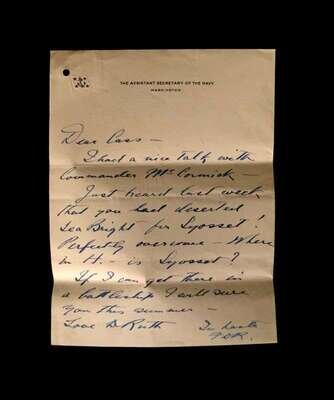 THE ASSISTANT SECRETARY OF THE NAVY
WASHINGTON
Dear Cass –
I had a nice talk with
Commander McCormick –
Just heard last week
that you had deserted
Sea Bright for Syosset!
Perfectly overcome – Where
in H. – is Syosset?
If I can get there in
a battleship I will sure
you this summer –
Love to Ruth
In haste
F.D.R.